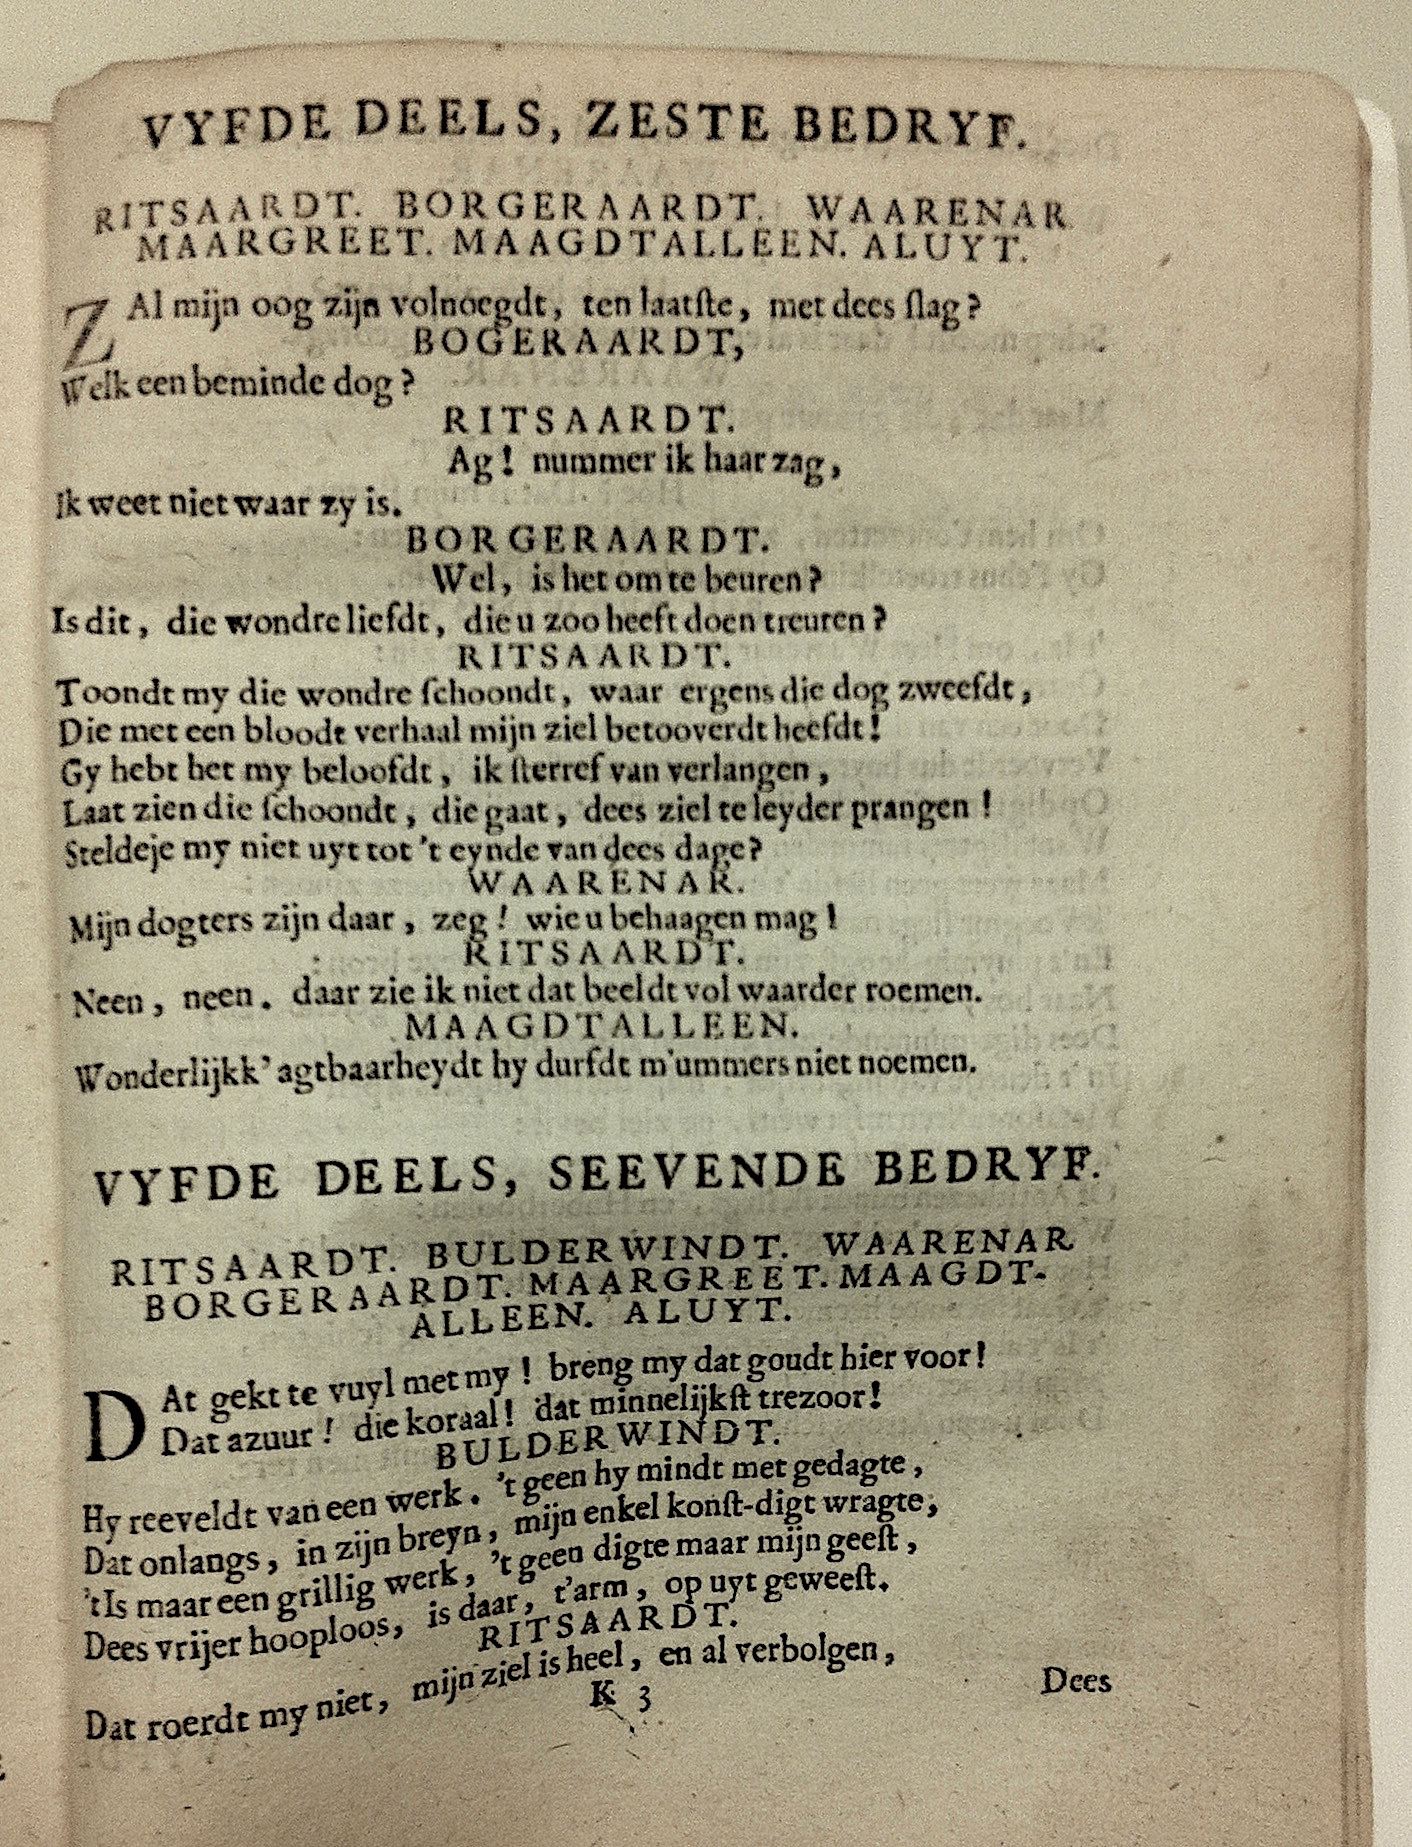 VYFDE DEELS, ZESTE BEDRYF.
RITSAARDT. BORGERAARDT. WAARENAR
MAARGREET. MAAGDTALLEEN. ALUYT.
ZAl mijn oog zijn volnoegdt, ten laatſte, met dees ſlag?
BOGERAARDT,
Welk een beminde dog?
RITSAARDT.
Ag! nummer ik haar zag,
Ik weet niet waar zy is.
BORGERAARDT.
Wel, is het om te beuren?
Is dit, die wondre liefdt, die u zoo heeft doen treuren?
RITSAARDT.
Toondt my die wondre ſchoondt, waar ergens die dog zweefdt,
Die met een bloodt verhaal mijn ziel betooverdt heefdt!
Gy hebt het my beloofdt, ik ſterref van verlangen,
Laat zien die ſchoondt, die gaat, dees ziel te leyder prangen!
Steldeje my niet uyt tot 't eynde van dees dage?
WAARENAR.
Mijn dogters zijn daar, zeg! wie u behaagen mag!
RITSAARDT.
Neen, neen. daar zie ik niet dat beeldt vol waarder roemen.
MAAGDTALLEEN.
Wonderlijkk' agtbaarheydt hy durfdt m'ummers niet noemen.
VYFDE DEELS, SEEVENDE BEDRYF.
RITSAARDT. BULDERWINDT. WAARENAR
BORGERAARDT. MAARGREET. MAAGDT-
ALLEEN. ALUYT.
DAt gekt te vuyl met my! breng my dat goudt hier voor!
Dat azuur! die koraal! dat minnelijkſt trezoor!
BULDERWINDT.
Hy reeveldt van een werk. 't geen hy mindt met gedagte,
Dat onlangs, in zijn breyn, mijn enkel konſt-digt wragte,
't Is maar een grillig werk, 't geen digte maar mijn geeſt,
Dees vrijer hooploos, is daar, t'arm, op uyt geweeſt.
RITSAARDT.
Dat roerdt my niet, mijn ziel is heel, en al verbolgen,
K 3
Dees